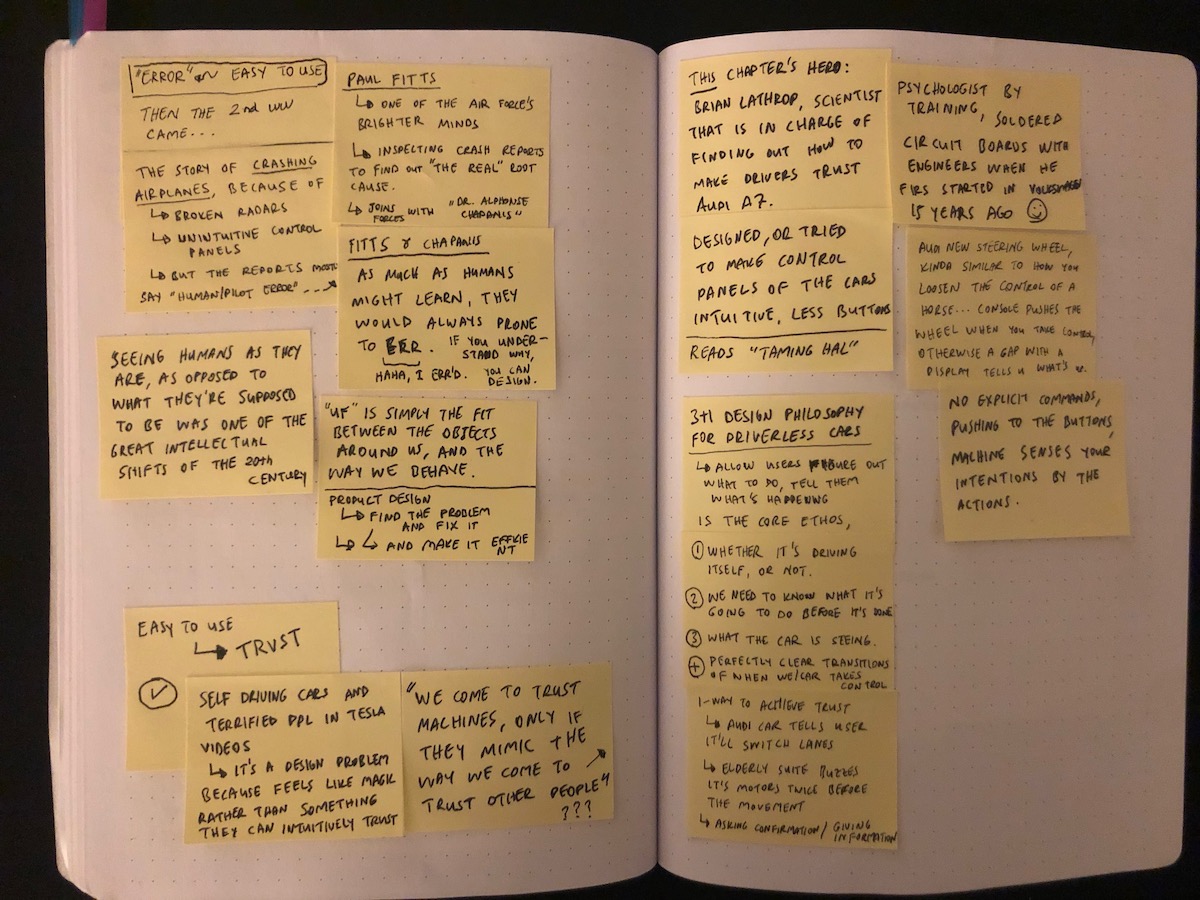 "ERROR" ON EASY TO USE
THEN THE 2nd WW
CAME...
THE STORY OF CRASHING
AIRPLANES, BECAUSE OF
↳ BROKEN RADARS
↳ UNINTUITIVE CONTROL
PANELS
↳ BUT THE REPORTS MOSTLY
SAY "HUMAN/PILOT ERROR" ...
PAUL FITTS
↳ ONE OF THE AIR FORCE'S
BRIGHTER MINDS
↳ INSPECTING CRASH REPORTS
TO FIND OUT "THE REAL" ROOT
CAUSE.
↳ JOINS FORCES WITH "DR. ALPHONSE
CHAPANIS"
FITTS & CHAPANIS
AS MUCH AS HUMANS
MIGHT LEARN, THEY
WOULD ALWAYS PRONE
TO ERR. IF YOU UNDER-
STAND WHY,
YOU CAN
DESIGN.
HAHA, I ERR'D.
SEEING HUMANS AS THEY
ARE, AS OPPOSED TO
WHAT THEY'RE SUPPOSED
TO BE WAS ONE OF THE
GREAT INTELLECTUAL
SHIFTS OF THE 20th
CENTURY
"UF" IS SIMPLY THE FIT
BETWEEN THE OBJECTS
AROUND US, AND THE
WAY WE BEHAVE.
PRODUCT DESIGN
↳ FIND THE PROBLEM
AND FIX IT
↳ ↳ AND MAKE IT EFFICIE
NT
EASY TO USE
↳ TRUST
SELF DRIVING CARS AND
TERRIFIED PPL IN TESLA
VIDEOS
↳ IT'S A DESIGN PROBLEM
BECAUSE FEELS LIKE MAGIC
RATHER THAN SOMETHING
THEY CAN INTUITIVELY TRUST
"WE COME TO TRUST
MACHINES, ONLY IF
THEY MIMIC THE
WAY WE COME TO
TRUST OTHER PEOPLE"
???
THIS CHAPTER'S HERO:
BRIAN LATHROP, SCIENTIST
THAT IS IN CHARGE OF
FINDING OUT HOW TO
MAKE DRIVERS TRUST
AUDI A7.
DESIGNED, OR TRIED
TO MAKE CONTROL
PANELS OF THE CARS
INTUITIVE, LESS BUTTONS
READS "TAMING HAL"
3+1 DESIGN PHILOSOPHY
FOR DRIVERLESS CARS
↳ ALLOW USERS FIGURE OUT
WHAT TO DO, TELL THEM
WHAT'S HAPPENING
IS THE CORE ETHOS,
① WHETHER IT'S DRIVING
ITSELF, OR NOT.
② WE NEED TO KNOW WHAT IT'S
GOING TO DO BEFORE IT'S DONE
③ WHAT THE CAR IS SEEING.
⊕ PERFECTLY CLEAR TRANSITIONS
OF WHEN WE/CAR TAKES
CONTROL
1-WAY TO ACHIEVE TRUST
↳ AUDI CAR TELLS USER
IT'LL SWITCH LANES
↳ ELDERLY SUITE BUZZES
IT'S MOTORS TWICE BEFORE
THE MOVEMENT
↳ ASKING CONFIRMATION/ GIVING
INFORMATION
PSYCHOLOGIST BY
TRAINING, SOLDERED
CIRCUIT BOARDS WITH
ENGINEERS WHEN HE
FIRS STARTED IN VOLKSWAGEN
15 YEARS AGO
AUDI NEW STEERING WHEEL,
KINDA SIMILAR TO HOW YOU
LOOSEN THE CONTROL OF A
HORSE... CONSOLE PUSHES THE
WHEEL WHEN YOU TAKE CONTROL,
OTHERWISE A GAP WITH A
DISPLAY TELLS U WHAT'S
NO EXPLICIT COMMANDS,
PUSHING TO THE BUTTONS,
MACHINE SENSES YOUR
INTENTIONS BY THE
ACTIONS.